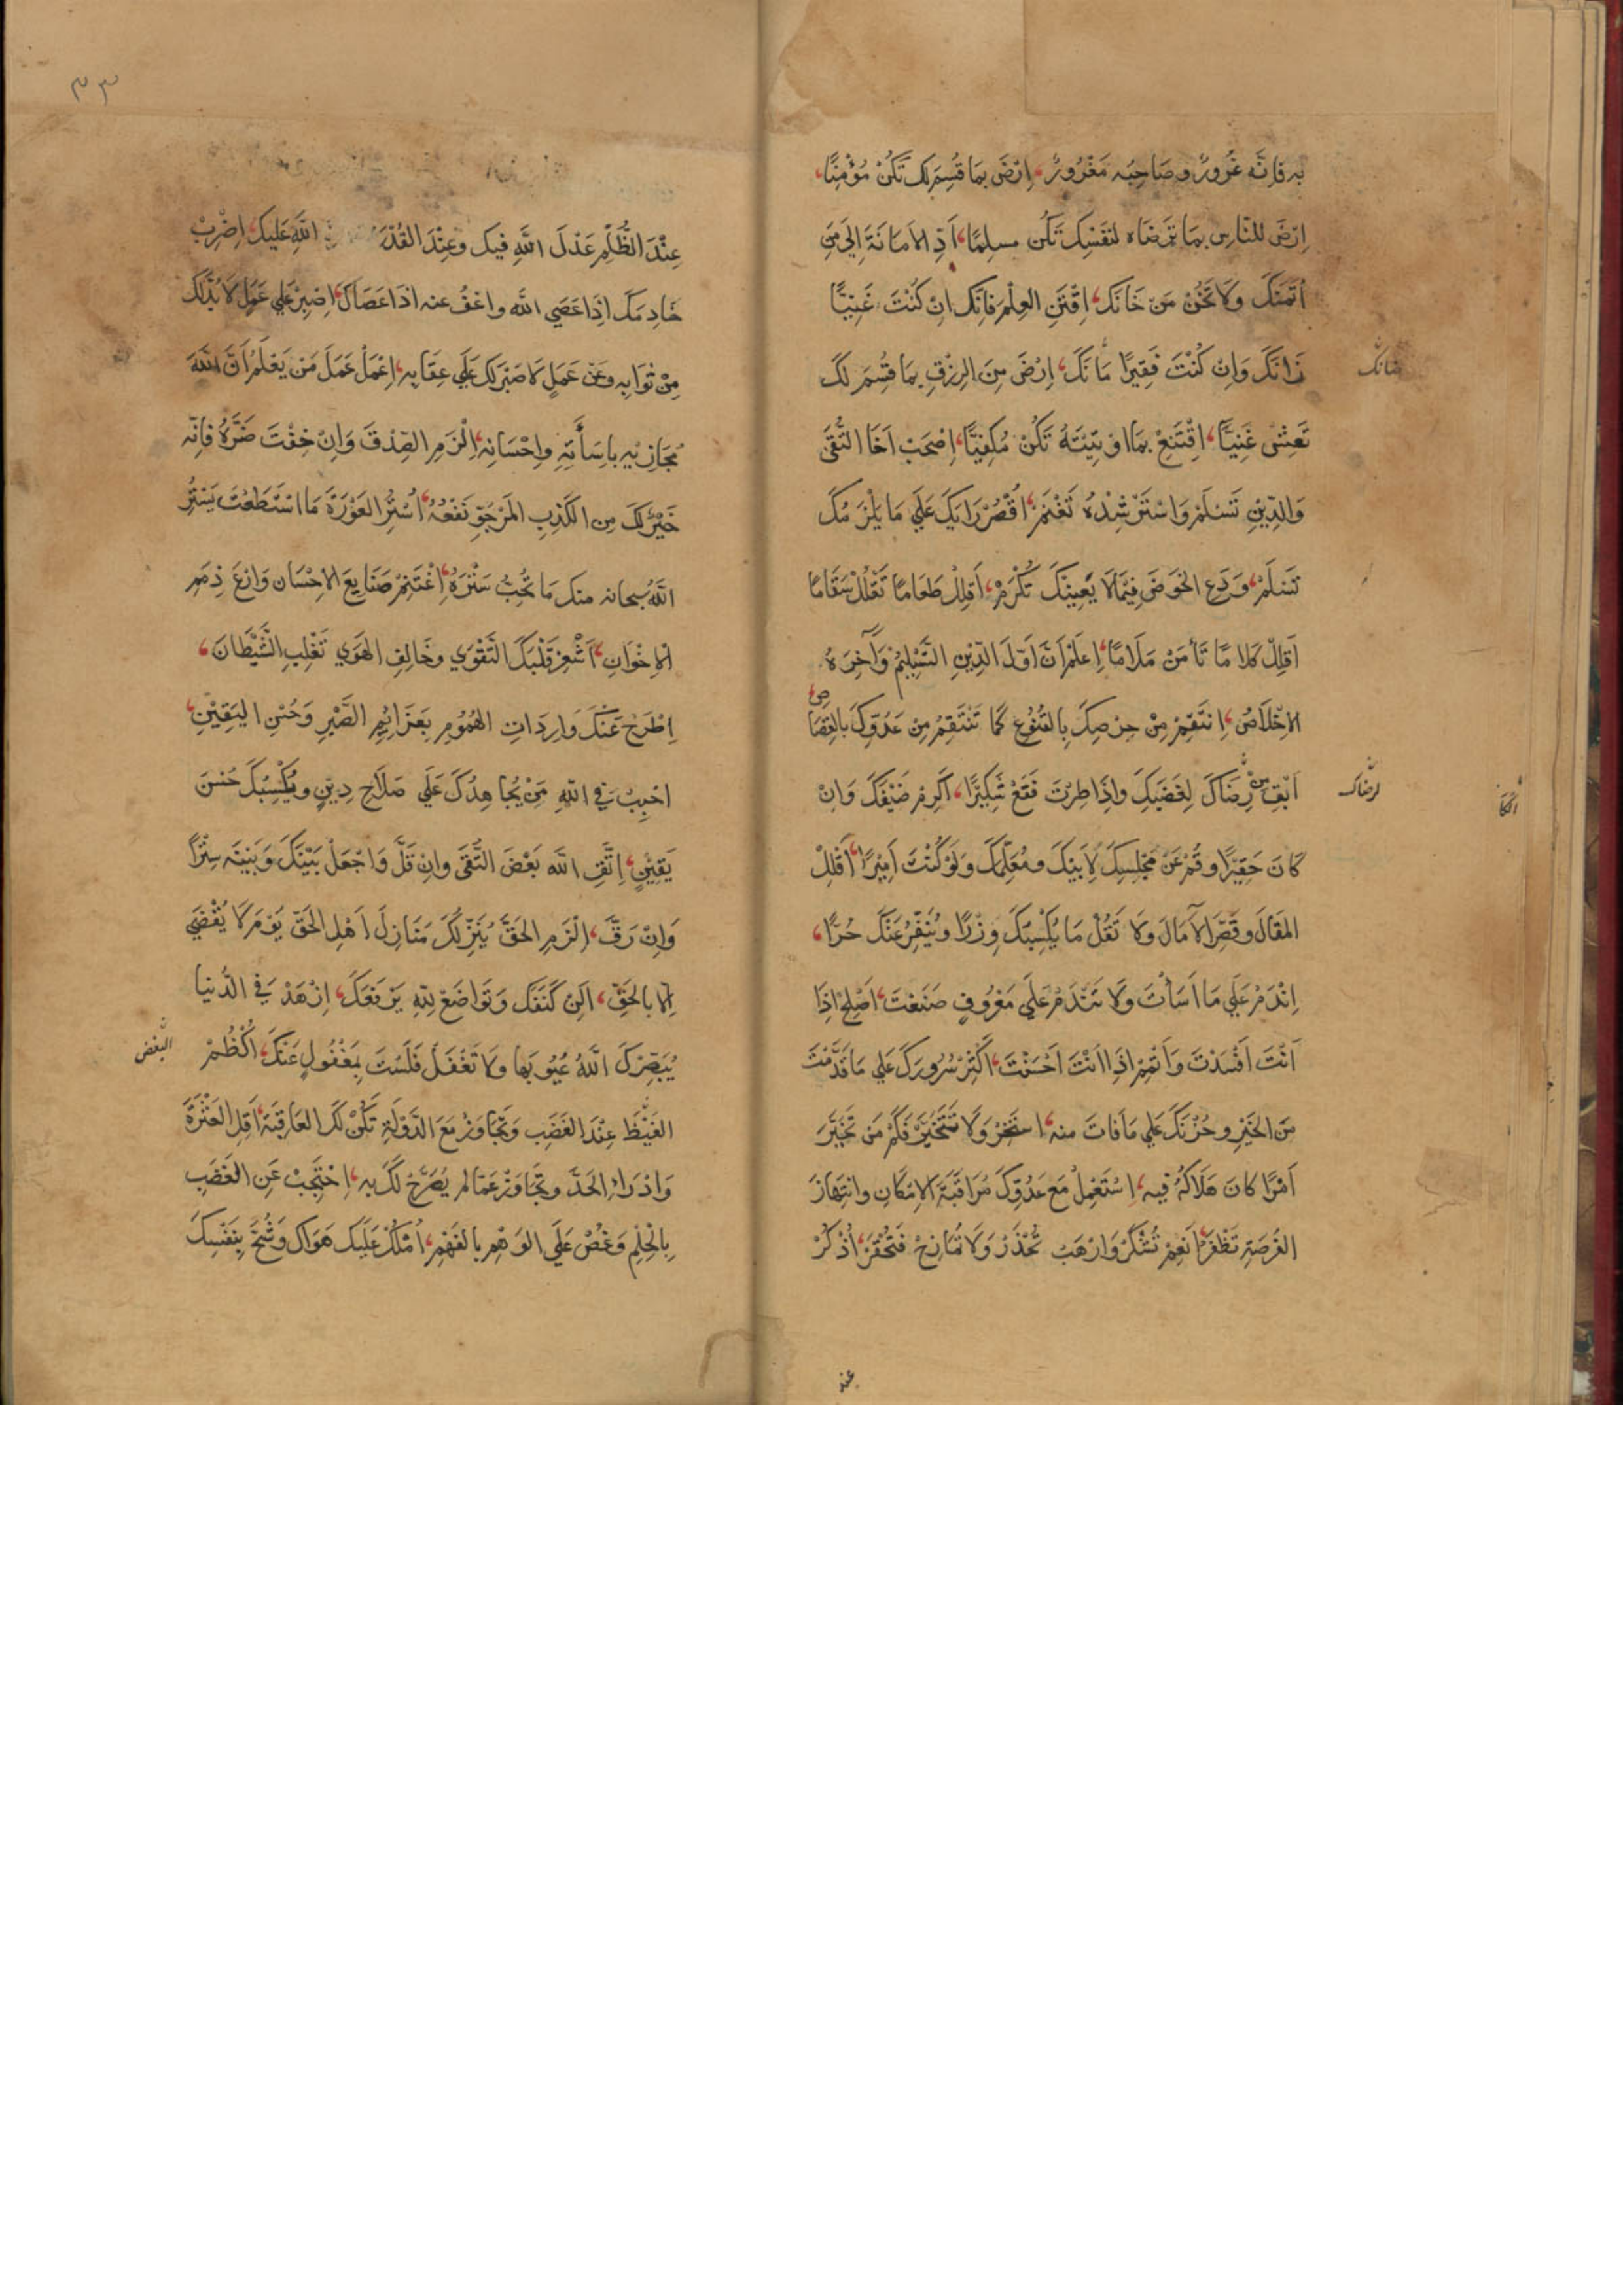 به فانه غُرورٌ وصَاحِبُه مَغْرُورٌ، اِرْضَ بمَا قُسِمَ لَكَ تَكُنْ مُؤْمِنًا،
اِرْضَ للنّاسِ بمَا تَرضَاه لنَفسِكَ تَكُن مسلِمًا، اَدِّ الاَمَانَةَ اِلَى مَنِ
ائْتَمَنَكَ ولَا تَخُنْ مَنْ خَانَكَ، اِقْتَنِ العِلْمَ فَاِنَّكَ اِنْ كُنْتَ غَنِيًّا
زَانَكَ وَاِنْ كُنْتَ فَقِيرًا مَانَكَ، اِرْضَ مِنَ الرِزْقِ بمَا قُسِمَ لَكَ
صَانَكَ
تَعِشْ غَنِيًّا، اِقْتَنِعْ بمَا اوْتِيْتَهُ تَكُنْ مُكفِيًّا، اِصْحَبْ اَخَا التُّقَى
وَالدِّيْنِ تَسْلَمْ وَاسْتَرْشِدْهُ تَغْنَمْ، اُقْصُرْ رَايَكَ عَلَي مَا يَلْزَمُكَ
تَسْلَمْ، وَدَعِ الخَوضَ فِيْمَا لَا يَعنِيْكَ تُكْرَمْ، اَقلِلْ طَعَامًا تَقْلُلْ سَقَامًا
اَقلِلْ كَلامًا تَأمَنْ مَلَامًا، اِعلَمْ اَنَّ اَوّلَ الدِّيْنِ التَّسْلِيْمُ وَآخِرَهُ
الاِخْلَاصُ، اِنتَقِمْ مِنْ حِرْصِكَ بِالقُنُوعِ كَمَا تَنْتَقِمُ مِنْ عَدُوِّكَ بالقِصَاص
اَبْقِ مِنْ رِّضَاكَ لِغَضَبِكَ وَاِذَا طِرْتَ فَقَعْ شَكِيرًا، اَكْرِمْ ضَيْفَكَ وَاِنْ
لرضاك
كَانَ حَقِيْرًا وقُمْ عَنْ مَجْلِسِكَ لِاَبِيْكَ ومُعَلِّمِكَ وَلَوْ كُنْتَ اَمِيْرًا، اَقْلِلْ
المَقَالَ وقَصِّرِ الآمَالَ ولَا تَقُلْ مَا يُكْسِبُكَ وِزْرًا ويُنَفِّرُ عَنْكَ حُرًّا،
اِنْدَمْ عَلَي مَا اَسَأتَ ولَا تَنْدَمْ عَلَي مَعْرُوفٍ صَنَعْتَ، اَصْلِحْ اِذَا
اَنْتَ اَفْسَدْتَ وَاَتْمِمْ اِذَا اَنْتَ اَحْسَنْتَ، اَكْثِرْ سُرُورَكَ عَلي مَا قَدَّمْتَ
مِنَ الخَيْرِ وحُزْنَكَ عَلي مَا فَاتَ منه، اسْتَخِرْ وَلَا تَتَخَيَّرْ فَكَمْ مَن تَخَيَّرَ
اَمْرًا كَانَ هَلَاكُهُ فِيه، اِسْتَعْمِلْ مَعَ عَدُوِّكَ مُرَاقَبَةَ الاِمْكَانِ وانتِهَازَ
الفُرْصَةِ تَظْفَرْ، اَنْعِمْ تُشْكَرْ وَارْهَبْ تُحْذَرْ وَلَا تُمَازِحْ فَتُحْقَرْ، اُذْكُرْ
عند
٣٣
عِنْدَ الظُّلْمِ عَدْلَ اللّهِ فِيكَ وعِنْدَ القُدْرَةِ اللّهِ عَلَيكَ، اِضْرِبْ
خَادِمَكَ اِذَا عَصَي اللّه واعْفُ عنه اِذَا عَصَاكَ، اِصْبِرْ عَلي عَمَلٍ لَا بُدَّ لَكَ
مِنْ ثَوَابِه وعَنْ عَمَلٍ لَا صَبْرَ لَكَ عَلَي عِقَابِه، اِعْمَلْ عَمَلَ مَنْ يَعْلَمُ اَنَّ اللّهَ
مُجَازِيْهِ بِاِسَأتِهِ وَاِحْسَانِه، اِلْزَمِ الصِّدْقَ وَاِنْ خِفْتَ ضَرَّهُ فَاِنّه
خَيْرٌ لَكَ مِن الكَذِبِ المَرْجُوِّ نَفْعُهُ، اُسْتُرِ العَوْرَةَ مَا اسْتَطَعْتَ يَسْتُرُ
اللّهُ سبحانه منك مَا تُحِبُّ سَتْرَهُ، اِغْتَنِمْ صَنَايِعَ الاِحْسَان وَارْعَ ذِمَمَ
الاِخْوَانِ، اَشْعِرْ قَلْبَكَ التَّقْوَي وخَالِفِ الهَوَي تَغْلِبِ الشَّيْطَانَ،
اِطْرَحْ عَنْكَ وَارِدَاتِ الهُمُومِ بِعَزَائِمِ الصَّبْرِ وَحُسْنِ اليَقِيْنِ،
احْبِبْ فِي اللّهِ مَنْ يُجَاهِدُكَ عَلَي صَلَاحِ دِيْنٍ ويُكْسِبُكَ حُسْنَ
يَقِيْنٍ، اِتَّقِ اللّه بَعْضَ التُّقَى وَاِنْ قَلَّ وَاجْعَلْ بَيْنَكَ وَبَيْنَه سِتْرًا
وَاِنْ رَقَّ، اِلْزَمِ الحَقَّ يُنَزِّلْكَ مَنَازِلَ اَهْلِ الحَقِّ يَوْمَ لَا يُقْضَي
اِلَّا بالحَقِّ، اَلِنْ كَنَفَكَ وَتَوَاضَعْ لِلّهِ يَرْفَعْكَ، اِزْهَدْ فِي الدُّنيَا
يُبَصِّرْكَ اللّهُ عُيُوبَهَا ولَا تَغْفَلْ فَلَسْتَ بِمَغْفُولٍ عَنْكَ، اُكْظُمْ
الغَيْظَ عِنْدَ الغَضَبِ وَتَجَاوَزْ مَعَ الدَّوْلَةِ تَكُنْ لَكَ العَاقِبَةُ، اَقِلِ العَثْرَةَ
وَادْرَاْ الحَدَّ وتَجَاوَزْ عَمّا لم يُصَرَّحْ لَكَ بِه، اِحْتَجِبْ عَنِ الغَضَبِ
بِالْحِلْمِ وَغُضّ عَلَي الوَهْمِ بالفَهْمِ، اُمْلُكْ عَلَيكَ هَوَاكَ وَشُحَّ بِنَفْسِكَ